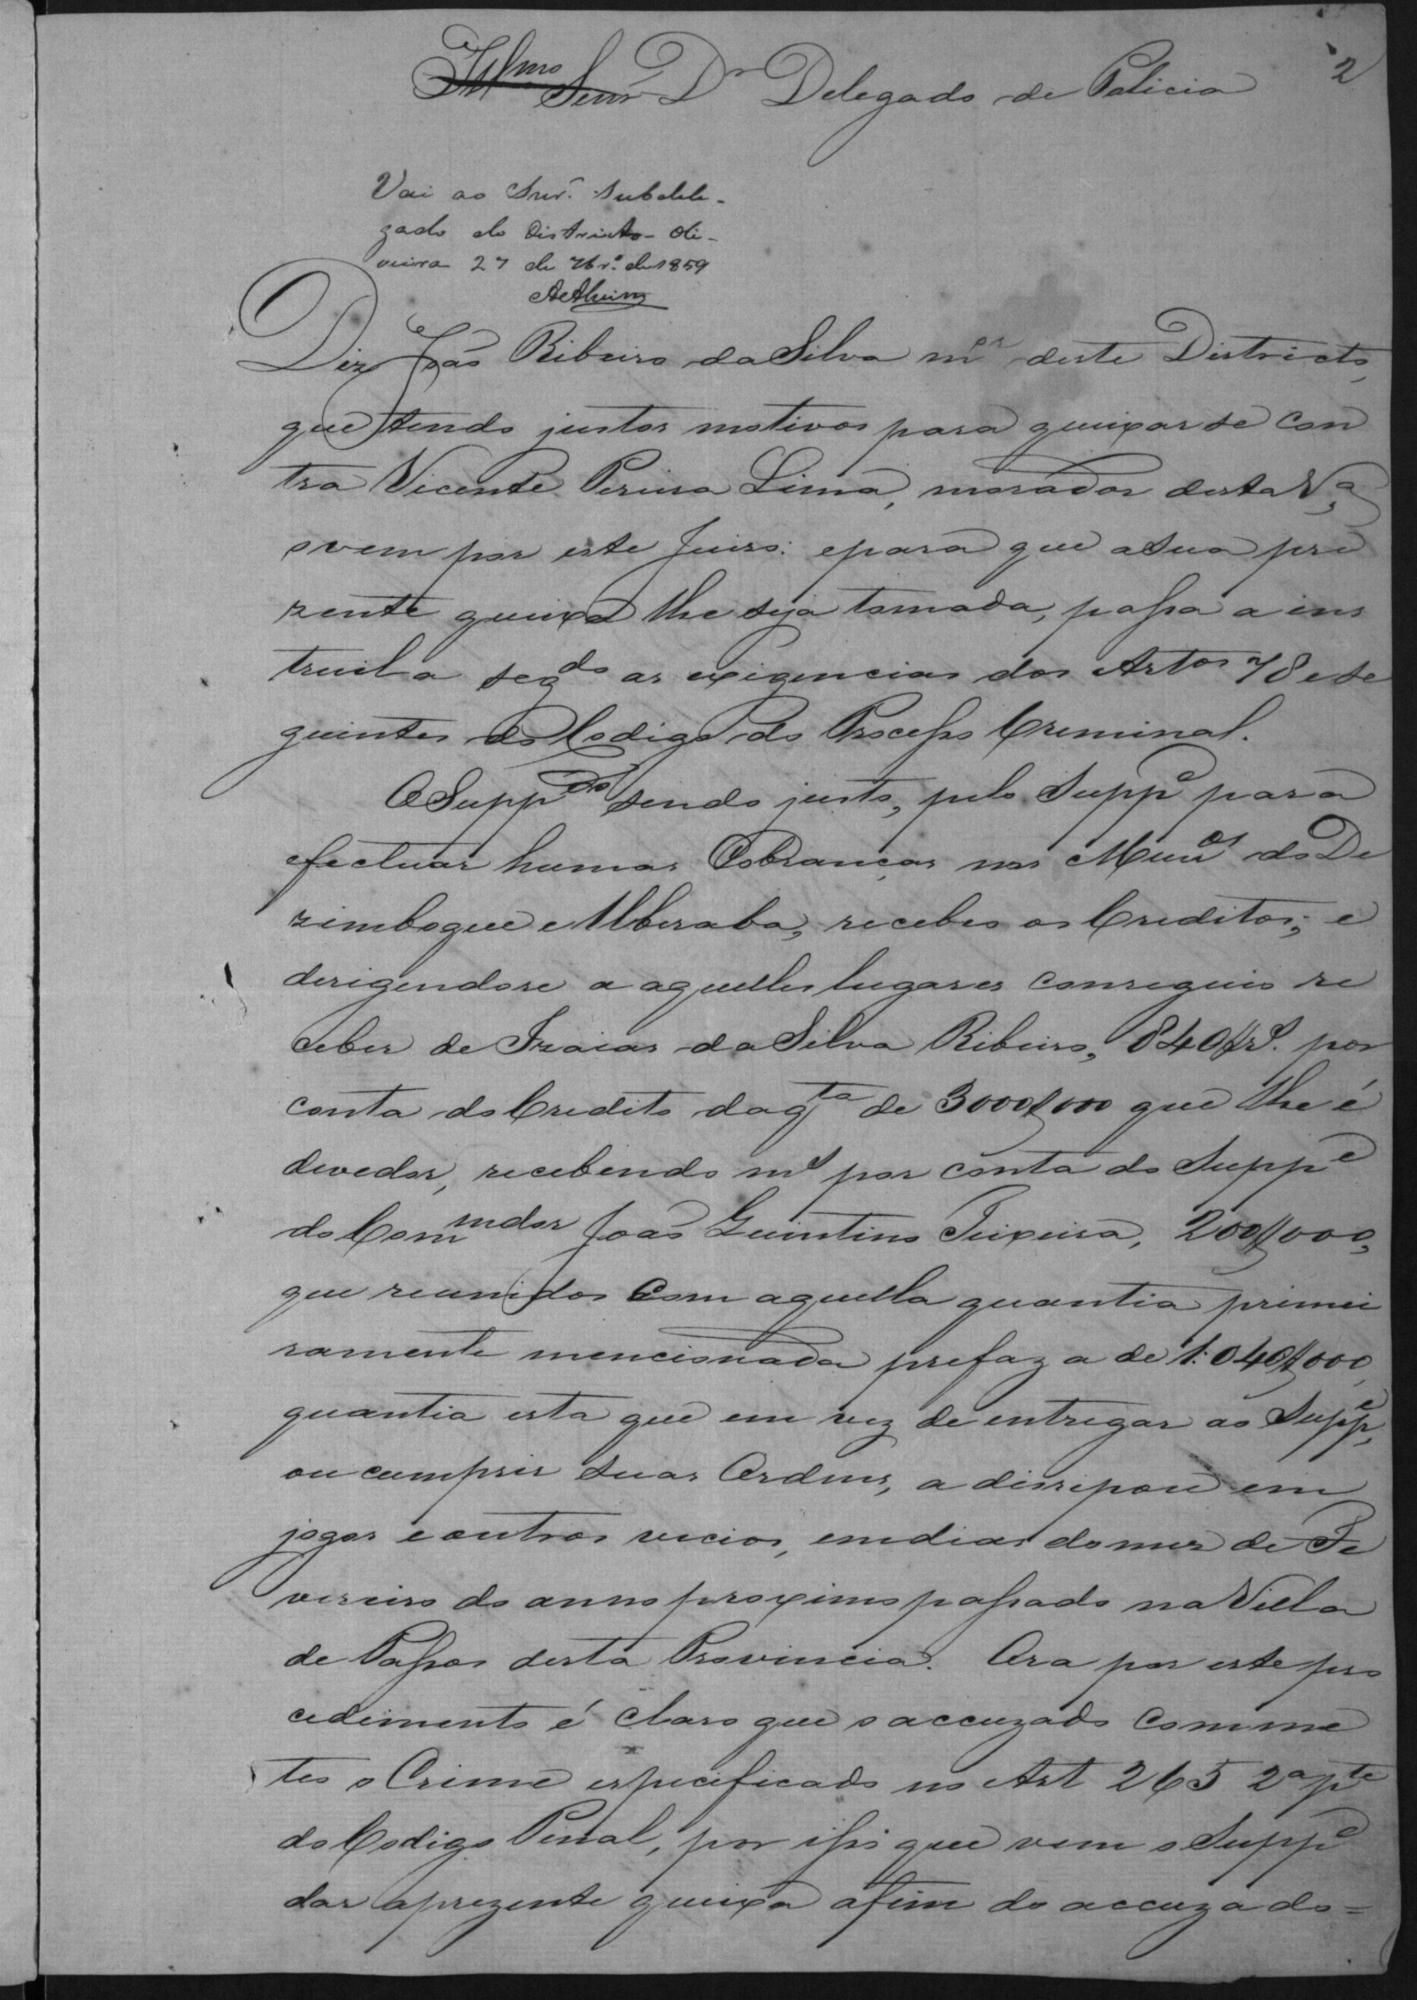 2
Illmo Senr Dr Delegado de Policia
Vai ao Snr. Subdele-
gado do Districto - Oli-
veira 27 de 7br.o de 1859
Diz João Ribeiro da Silva mor deste Districto,
que tendo justos motivos para queixar se con
tra Vicente Pereira Lima, morador desta Va,
o vem por este Juiso: e para que a sua pre
zente queixa lhe seja tomada, passa a ins
truil a segdo as exigencias dos Artos 78 e se
guintes do Codigo do Processo Creminal.
O Suppdo sendo justo, pelo Suppe para
efectuar humas Cobranças nos Municos do De
zimboque e Uberaba, recebeo os Creditos; e
derigendose a aquelles lugares conseguio re
ceber de Izaias da Silva Ribeiro, 840$rs. por
conta do Credito da qta de 3000$000 que lhe é
devedor, recebendo ms por conta do Suppe
do Commdor João Quintino Teixeira, 200$000,
que reunidos com aquella quantia primei
ramente mencionada prefaz a de 1:040$000,
quantia esta que em vez de entregar ao Suppe,
ou cumprir suas Ordens, a dissipou em
jogos e outros vicios, em dias do mez de Fe
vereiro do anno proximo passado na Villa
de Passos desta Provincia. Ora por este pro
cedimento é claro que o accuzado comme
teo o Crime espicificado no Art 265 2a pte
do Codigo Penal, por isso que vem o Suppe
dar a prezente queixa afim do accuzado=